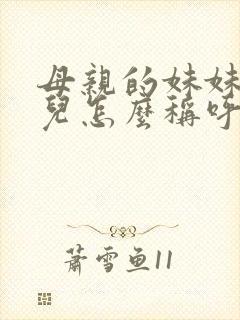 母親的妹妹
兒怎麼稱呼
蕭雪魚11